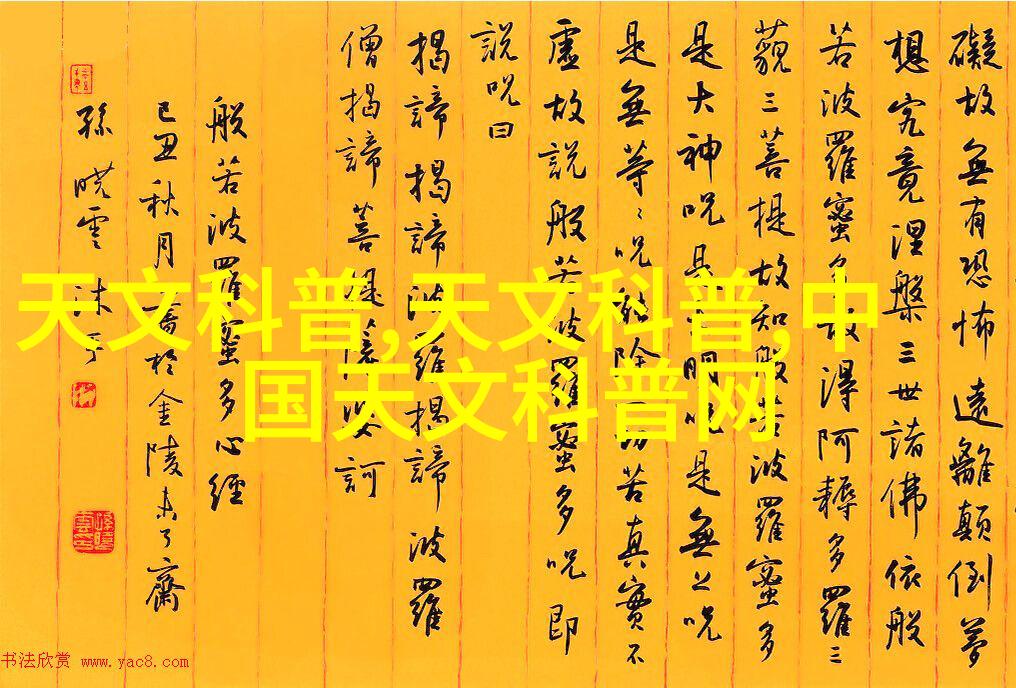 礙故無有恐怖遠離顛倒夢
想究竟涅槃三世諸佛依般
若波羅蜜多故得阿耨多羅三
藐三菩提故知般若波羅蜜多
是大神呪是大明呪是無上呪
是無等〻呪能除一切苦真實不
虛故說般若波羅蜜多呪即
說呪曰
揭諦揭諦波羅揭諦波羅
僧揭諦菩提薩婆訶
般若波羅蜜多心經
己丑秋月書於金陵未了齋
孫曉雲沐手
天文科普,天文科普,中
国天文科普网
书法欣赏 www.yac8.com